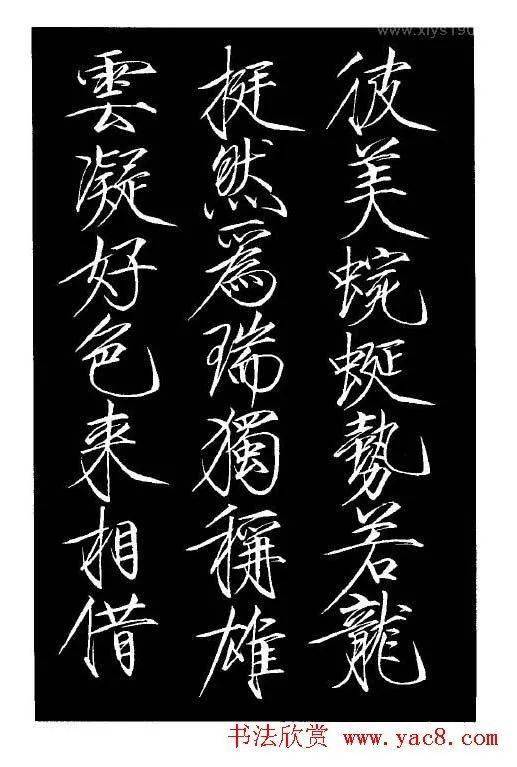 彼美蜿蜒勢若龍
挺然爲瑞獨稱雄
雲凝好色来相借
书法欣赏 www.yac8.com